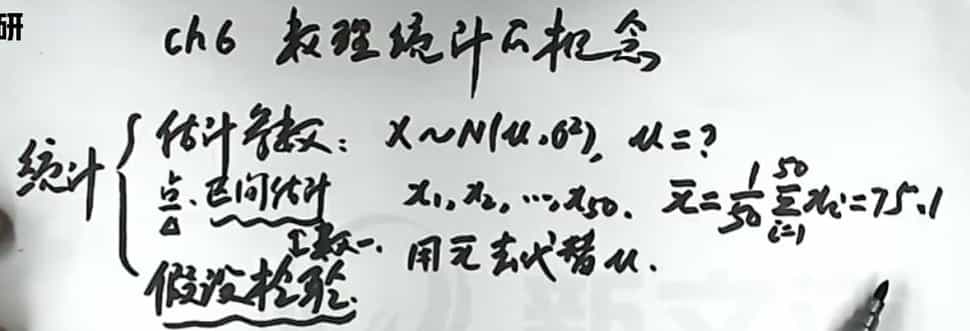 研
ch6 数理统计的概念
统计
估计参数: X~N(μ,σ²), μ=?
点、区间估计 x₁,x₂,…,x₅₀. x̄=1/50 ∑_{i=1}^{50} xᵢ=75.1
数一. 用x̄去代替μ.
假设检验.